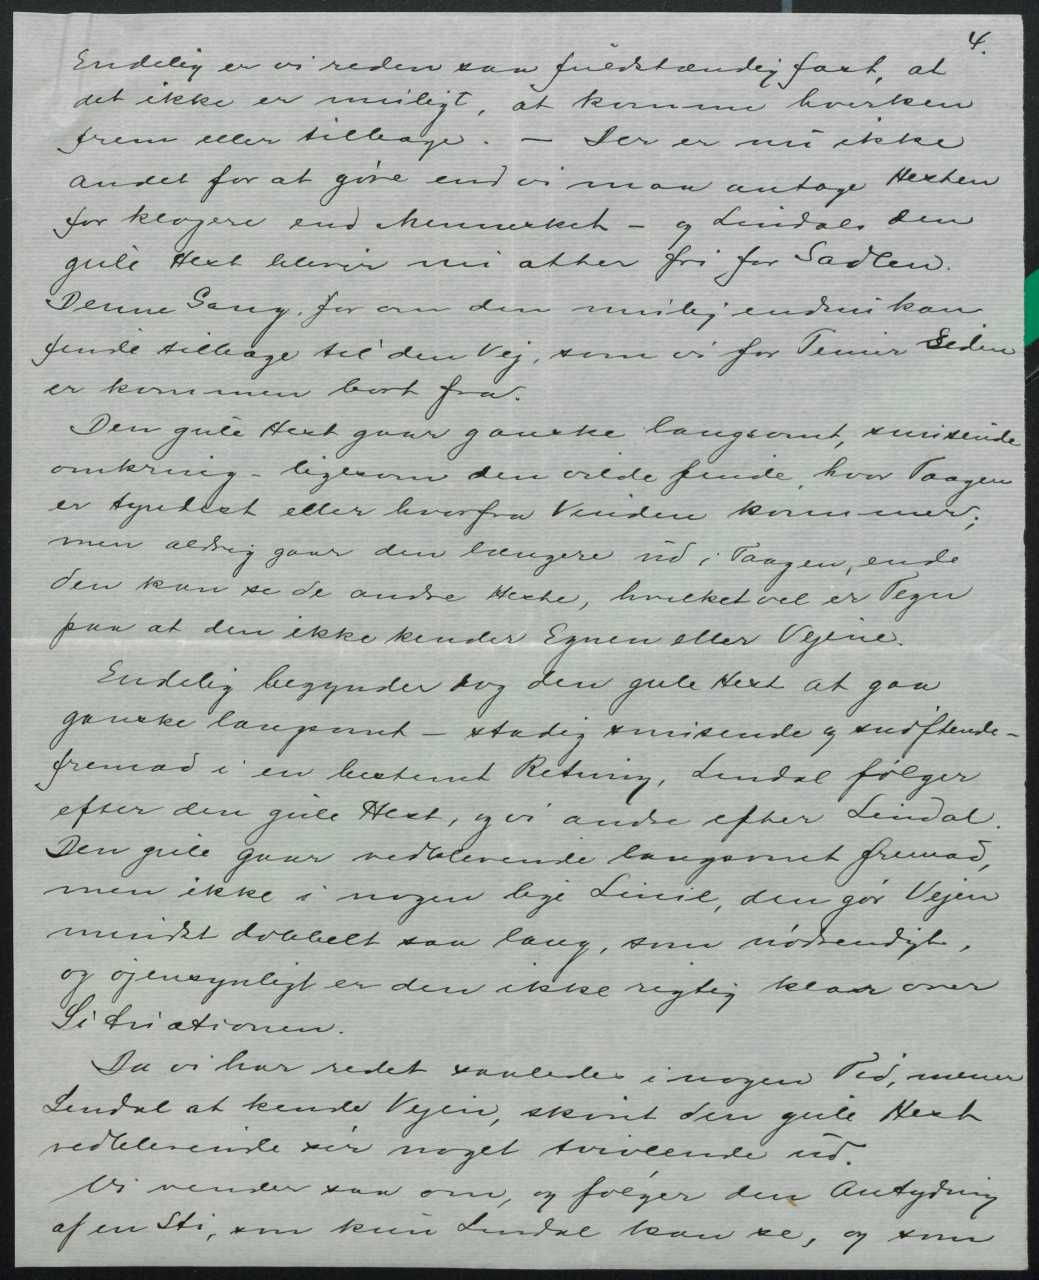 4.
Endelig er vi reden saa fuldstændig fast, at
det ikke er muligt, at komme hverken
frem eller tilbage. — Der er nu ikke
andet for at gøre end vi maa antage Hesten
for klogere end Mennesket — og Lindals den
gule Hest bliver nu atter fri for Sadlen.
Denne Gang, for om den mulig endnu kan
finde tilbage til den Vej, som vi for Timer Siden
er kommen bort fra.
Den gule Hest gaar ganske langsomt, snusende
omkring - ligesom den vilde finde, hvor Taagen
er tyndest eller hvorfra Vinden kommer;
men aldrig gaar den længere ud i Taagen, end
den kan se de andre Heste, hvilket vel er Tegn
paa at den ikke kender Egnen eller Vejene.
Endelig begynder dog den gule Hest at gaa
ganske langsomt — stadig snusende og snøftende -
fremad i en bestemt Retning, Lindal følger
efter den gule Hest, og vi andre efter Lindal.
Den gule gaar vedblevende langsomt fremad,
men ikke i nogen lige Linie, den gør Vejen
mindst dobbelt saa lang, som nødvendigt,
og øjensynligt er den ikke rigtig klar over
Situationen.
Da vi har redet saaledes i nogen Tid, mener
Lindal at kende Vejen, skønt den gule Hest
vedblevende ser noget tvivlende ud.
Vi vender saa om, og følger den Antydning
af en Sti, som kun Lindal kan se, og som